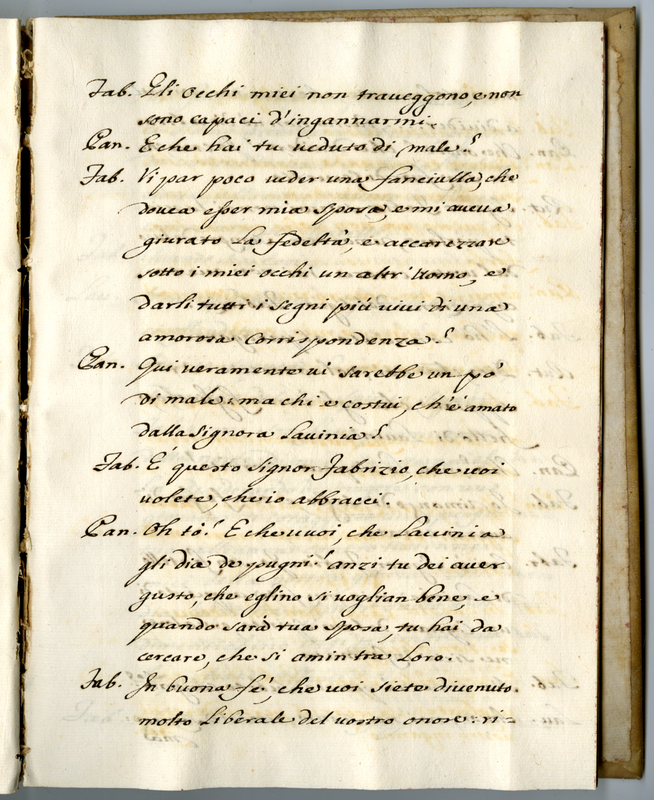 Fab. Gli occhi miei non traveggono, e non
sono capaci d'ingannarmi.
Pan. E che hai tu veduto di male?
Fab. Vi par poco veder una fanciulla, che
dovea esser mia sposa, e mi aveva
giurato la fedeltà, e accarezzare
sotto i miei occhi un altr'uomo, e
darli tutti i segni più vivi di una
amorosa corrispondenza?
Pan. Qui veramente vi sarebbe un pò
di male; ma chi e costui, ch'è amato
dalla Signora Lavinia?
Fab. E' questo Signor Fabrizio, che voi
volete, che io abbracci.
Pan. Oh tò! E che vuoi, che Lavinia
gli dia de pugni! anzi tu dei aver
gusto, che eglino si voglian bene, e
quando sarà tua sposa, tu hai da
cercare, che si amin tra loro.
Fab. In buona fé, che voi siete divenuto
molto liberale del vostro onore: ri=